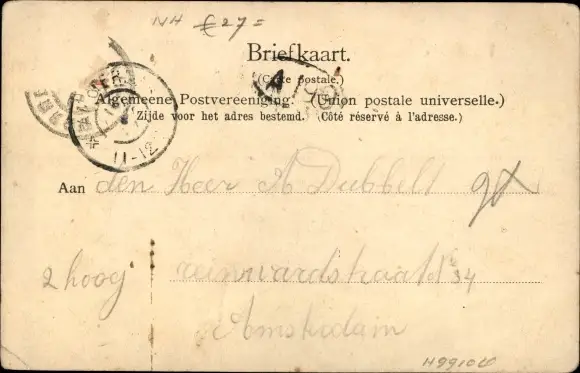 NH € 27=
Briefkaart.
(Carte postale.)
Algemeene Postvereeniging. (Union postale universelle.)
Zijde voor het adres bestemd. (Côté réservé à l'adresse.)
11-12
A
Aan den Heer A Dubbelt
2 hoog reinwardstraat No 34
Amsterdam
H9910